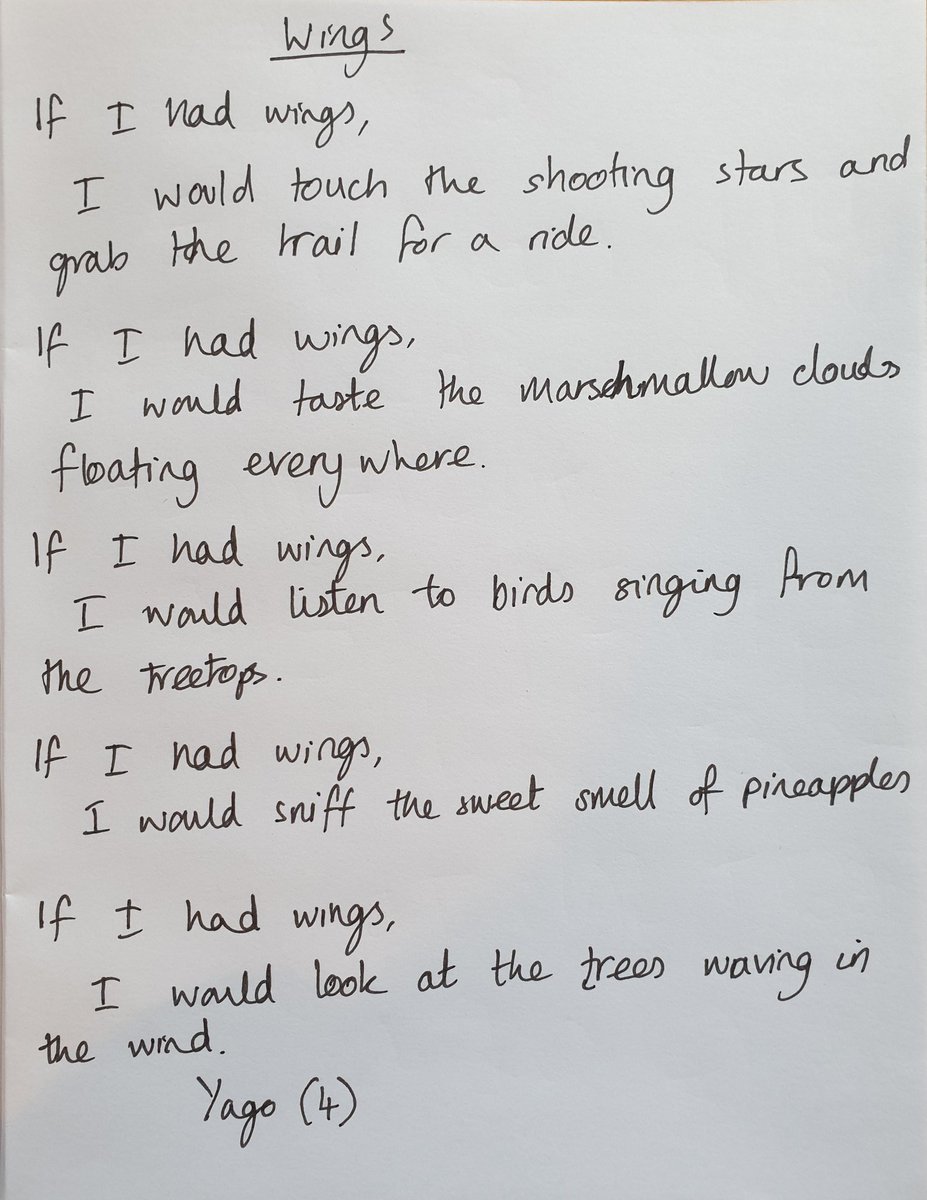 Wings
If I had wings,
I would touch the shooting stars and
grab the trail for a ride.
If I had wings,
I would taste the marschmallow clouds
floating everywhere.
If I had wings,
I would listen to birds singing from
the treetops.
If I had wings,
I would sniff the sweet smell of pineapples
If I had wings,
I would look at the trees waving in
the wind.
Yago (4)